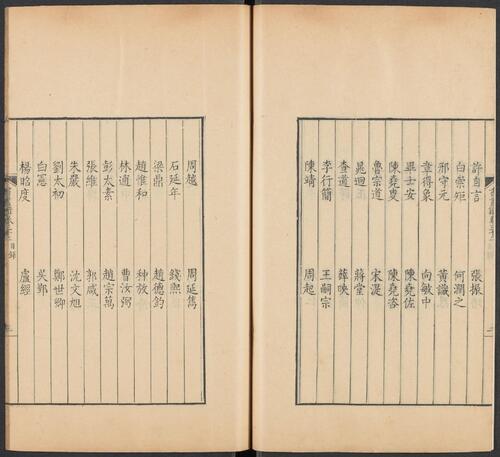 許自言 張振
白崇矩 何潤之
邢守元 黃議
章得象 向敏中
畢士安 陳堯佐
陳堯叟 陳堯咨
魯宗道 宋湜
晁迥 蔣堂
查道 薛映
李行簡 王嗣宗
陳靖 周起
周越 周延雋
石延年 錢熙
梁鼎 趙德鈞
趙惟和 种放
林逋 曹汝弼
彭太素 趙宗萬
張維 郭咸
朱嚴 沈文旭
劉太初 鄭世卿
白憲 吳鄞
楊昭度 盧經
目錄